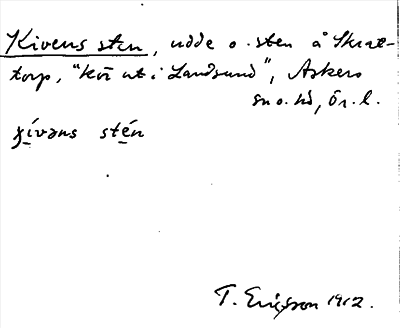 Kivens sten, udde o. sten å Skrat-
torp, "kör ut i Landsund", Askers
sn o. hd, Ör. l.
ɟívəns stén
T. Ericsson 1912.